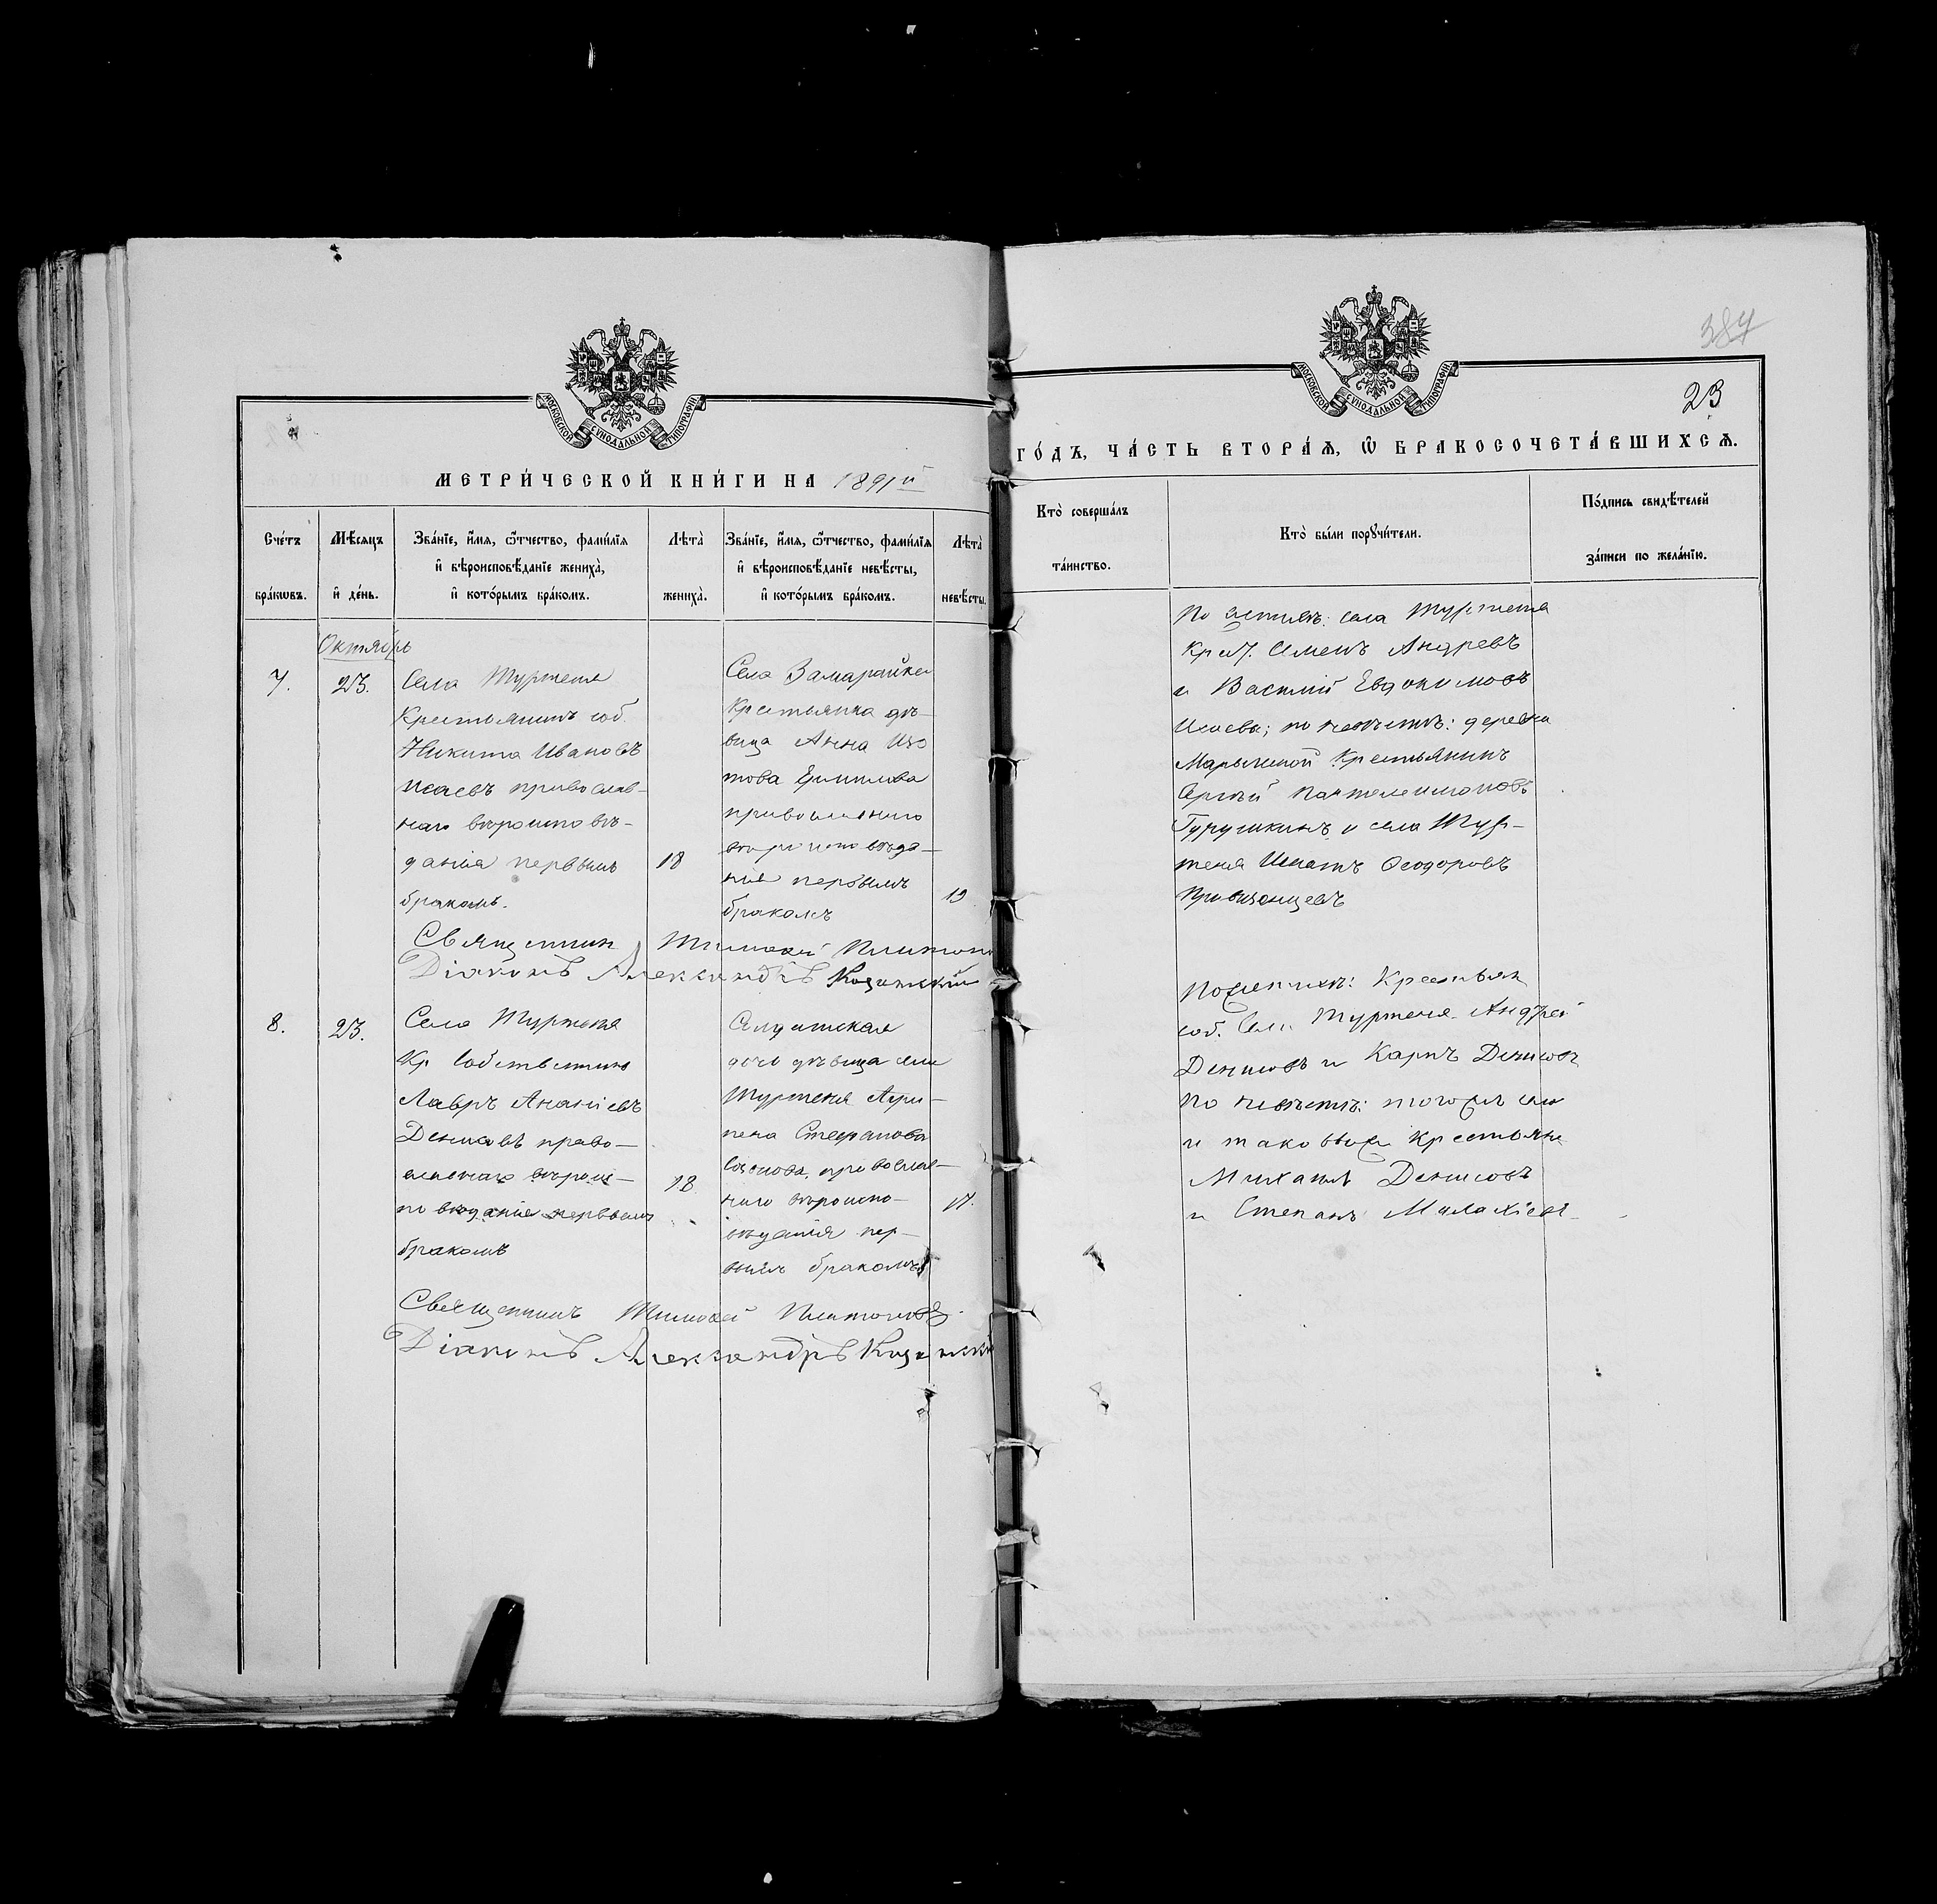 МОСКОВСКОЙ СУНОДАЛЬНОЙ ТИПОГРАФІИ
МЕТРИ́ЧЕСКОЙ КНИ́ГИ НА 1891й
Сче́тъ бра́кωвъ.
Мѣ́сяцъ и҆ де́нь.
Зва́нїе, и҆́мя, ѻ҆́тчество, фами́лїя
и҆ вѣроисповѣ́данїе жениха̀,
и҆ кото́рымъ бра́комъ.
Лѣта̀
жениха̀.
Зва́нїе, и҆́мя, ѻ҆́тчество, фами́лїя
и҆ вѣроисповѣ́данїе невѣ́сты,
и҆ кото́рымъ бра́комъ.
Лѣта̀
невѣ́сты.
Октябрь
7.
23.
Села Туртеня
Крестьянинъ соб.
Никита Ивановъ
Исаевъ православ-
наго вѣроисповѣ-
данія первымъ
бракомъ.
18
Села Замарайки
Крестьянка дѣ-
вица Анна Изо
това Ермилова
православнаго
вѣроисповѣда-
нія первымъ
бракомъ
19
Священник Тимофей Платоно
Діаконъ Александръ
8.
23.
Села Туртеня
Кр Собственникъ
Лавръ Ананіевъ
Денисовъ право-
славнаго вѣроис-
повѣданія первымъ
бракомъ
18
Солдатская
дочь дѣвица села
Туртеня Агри-
пена Стефанова
православ-
наго вѣроиспо-
вѣданія пер-
вымъ бракомъ
17.
Священникъ Тимофей Платоновъ.
Діаконъ Александръ
384
23
МОСКОВСКОЙ СУНОДАЛЬНОЙ ТИПОГРАФІИ
ГО́ДЪ, ЧА́СТЬ ВТОРА́Я, Ѽ БРАКОСОЧЕТА́ВШИХСЯ.
Кто̀ соверша́лъ
та́инство.
Кто̀ бы́ли порꙋчи́тели.
По́дпись свидѣ́телей
за́писи по жела́нїю.
По женихѣ: села Туртеня
Крест. Семенъ Андреевъ
и Василій Евдокимовъ
Исаевы; по невѣстѣ: деревни
Марычевой Крестьянинъ
Сергѣй Пантелеимоновъ
Гурушкинъ и села Тур-
теня Игнатъ Ѳеодоровъ
По женихѣ: Крестьян
соб. Села Туртеня Андрей
Денисовъ и Карпъ Денисовъ
по невѣстѣ: тогоже села
и таковыеже крестьяне
Михаилъ Денисовъ
и Степанъ Малахіевъ